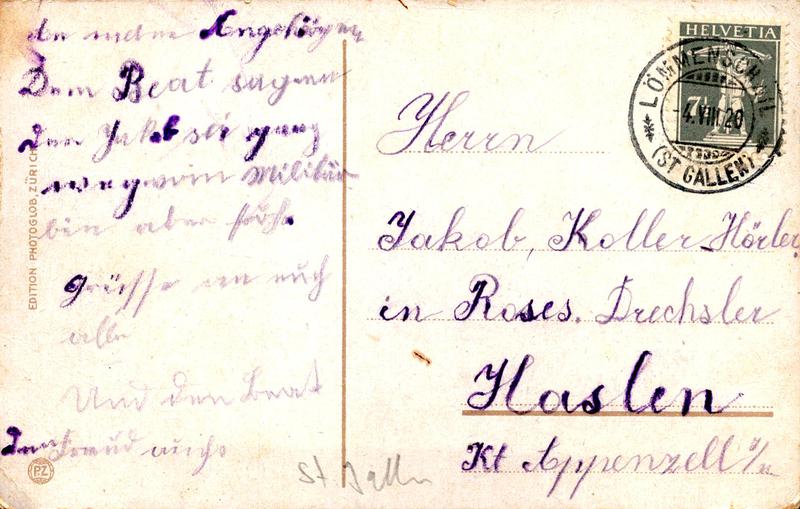 An meine Angehörigen
Dem Beat sagen
den Jakob sei ganz
weg vom Militär
bin aber froh.
grüsse an euch
alle
Und den Beat
Den Freud auch
EDITION PHOTOGLOB, ZÜRICH
PZ
St Gallen
HELVETIA
7½
LÖMMENSCHWIL
-4.VIII.20
(ST GALLEN)
Herrn
Jakob, Koller-Hörler
in Roses. Drechsler
Haslen
Kt Appenzell